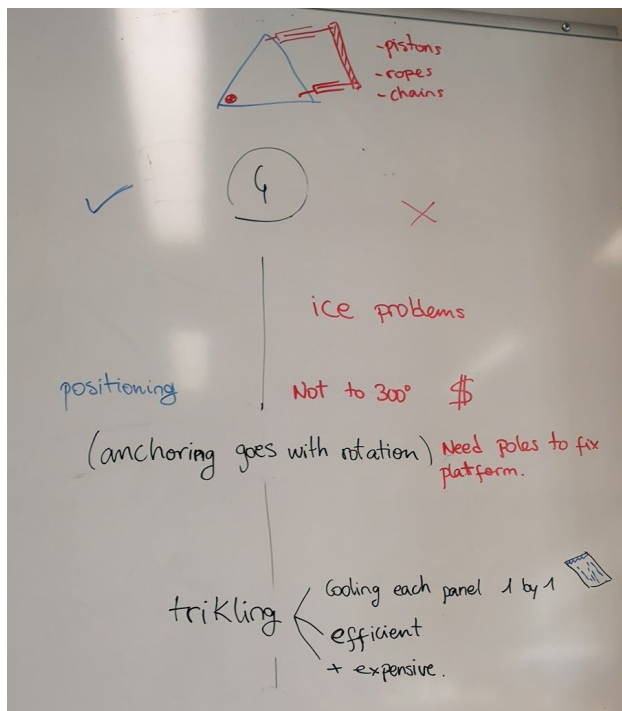 -pistons
-ropes
-chains
4
ice problems
positioning
Not to 300° $
(anchoring goes with rotation)
Need poles to fix
platform.
trikling
Cooling each panel 1 by 1
efficient
+ expensive.